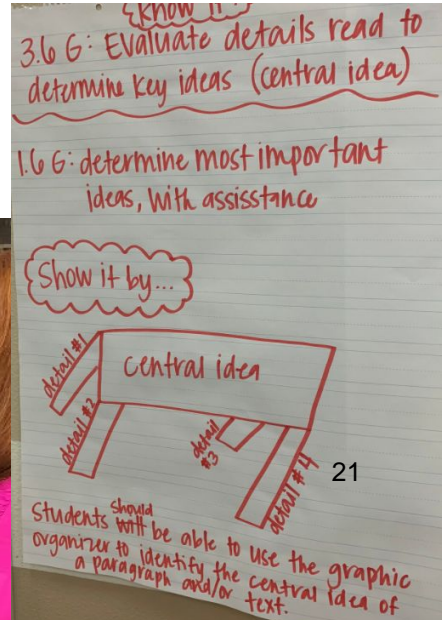 know it!
3.6 G: Evaluate details read to
determine key ideas (central idea)
1.6 G: determine most important
ideas, with assisstance
Show it by...
central idea
detail #1
detail #2
detail #3
detail #4
21
Students should be able to use the graphic
organizer to identify the central idea of
a paragraph and/or text.